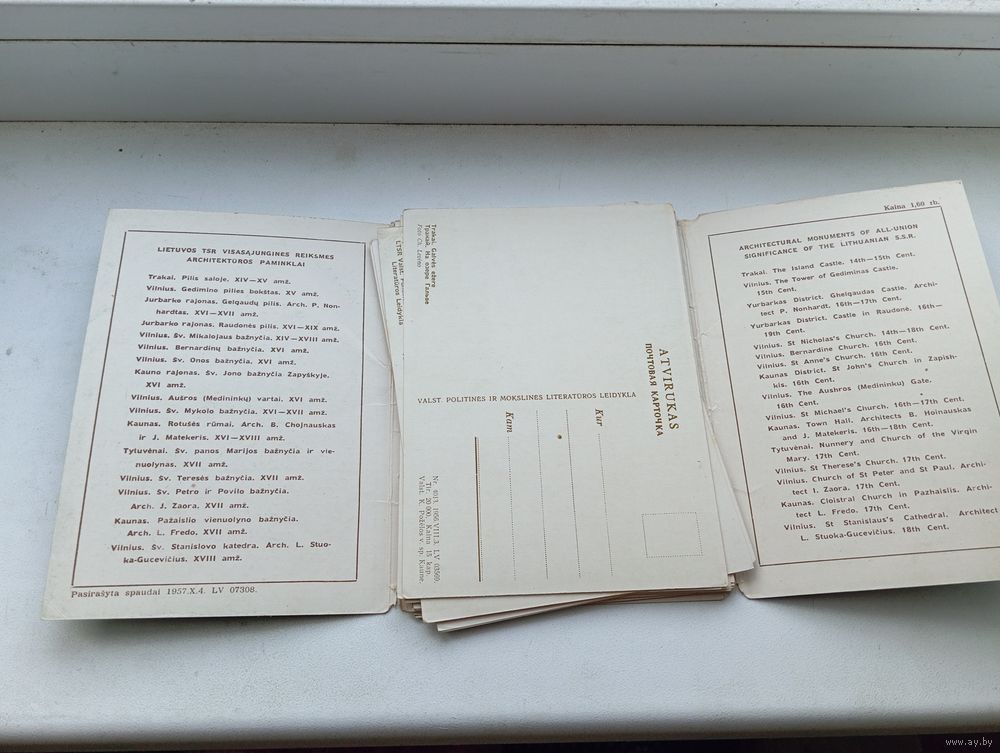 LIETUVOS TSR VISASĄJUNGINĖS REIKŠMĖS
ARCHITEKTŪROS PAMINKLAI
Trakai. Pilis saloje. XIV—XV amž.
Vilnius. Gedimino pilies bokštas. XV amž.
Jurbarko rajonas. Gelgaudų pilis. Arch. P. Non-
hardtas. XVI—XVII amž.
Jurbarko rajonas. Raudonės pilis. XVI—XIX amž.
Vilnius. Šv. Mikalojaus bažnyčia. XIV—XVIII amž.
Vilnius. Bernardinų bažnyčia. XVI amž.
Vilnius. Šv. Onos bažnyčia. XVI amž.
Kauno rajonas. Šv. Jono bažnyčia Zapyškyje.
XVI amž.
Vilnius. Aušros (Medininkų) vartai. XVI amž.
Vilnius. Šv. Mykolo bažnyčia. XVI—XVII amž.
Kaunas. Rotušės rūmai. Arch. B. Chojnauskas
ir J. Matekeris. XVI—XVIII amž.
Tytuvėnai. Šv. panos Marijos bažnyčia ir vie-
nuolynas. XVII amž.
Vilnius. Šv. Teresės bažnyčia. XVII amž.
Vilnius. Šv. Petro ir Povilo bažnyčia.
Arch. J. Zaora. XVII amž.
Kaunas. Pažaislio vienuolyno bažnyčia.
Arch. L. Fredo. XVII amž.
Vilnius. Šv. Stanislovo katedra. Arch. L. Stuo-
ka-Gucevičius. XVIII amž.
Pasirašyta spaudai 1957.X.4. LV 07308.
LTSR Valst.
Literatūros Leidykla
Trakai. Galvės ežere
Тракай. На озере Гальве
Foto Ch. Levino
VALST. POLITINĖS IR MOKSLINĖS LITERATŪROS LEIDYKLA
ATVIRUKAS
ПОЧТОВАЯ КАРТОЧКА
Kur
Kam
Nr. 4013. 1956.VIII.3. LV 03569.
Tir. 20 000. Kaina 15 kap.
Valst. K. Poželos v. sp. Kaune.
Kaina 1,60 rb.
ARCHITECTURAL MONUMENTS OF ALL-UNION
SIGNIFICANCE OF THE LITHUANIAN S.S.R.
Trakai. The Island Castle. 14th—15th Cent.
Vilnius. The Tower of Gediminas Castle.
15th Cent.
Yurbarkas District. Ghelgaudas Castle. Archi-
tect P. Nonhardt. 16th—17th Cent.
Yurbarkas District. Castle in Raudonė. 16th—
19th Cent.
Vilnius. St Nicholas's Church. 14th—18th Cent.
Vilnius. Bernardine Church. 16th Cent.
Vilnius. St Anne's Church. 16th Cent.
Kaunas District. St John's Church in Zapish-
kis. 16th Cent.
Vilnius. The Aushros (Medininku) Gate.
16th Cent.
Vilnius. St Michael's Church. 16th—17th Cent.
Kaunas. Town Hall. Architects B. Hoinauskas
and J. Matekeris. 16th—18th Cent.
Tytuvėnai. Nunnery and Church of the Virgin
Mary. 17th Cent.
Vilnius. St Therese's Church. 17th Cent.
Vilnius. Church of St Peter and St Paul. Archi-
tect I. Zaora. 17th Cent.
Kaunas. Cloistral Church in Pazhaislis. Archi-
tect L. Fredo. 17th Cent.
Vilnius. St Stanislaus's Cathedral. Architect
L. Stuoka-Gucevičius. 18th Cent.
www.ay.by